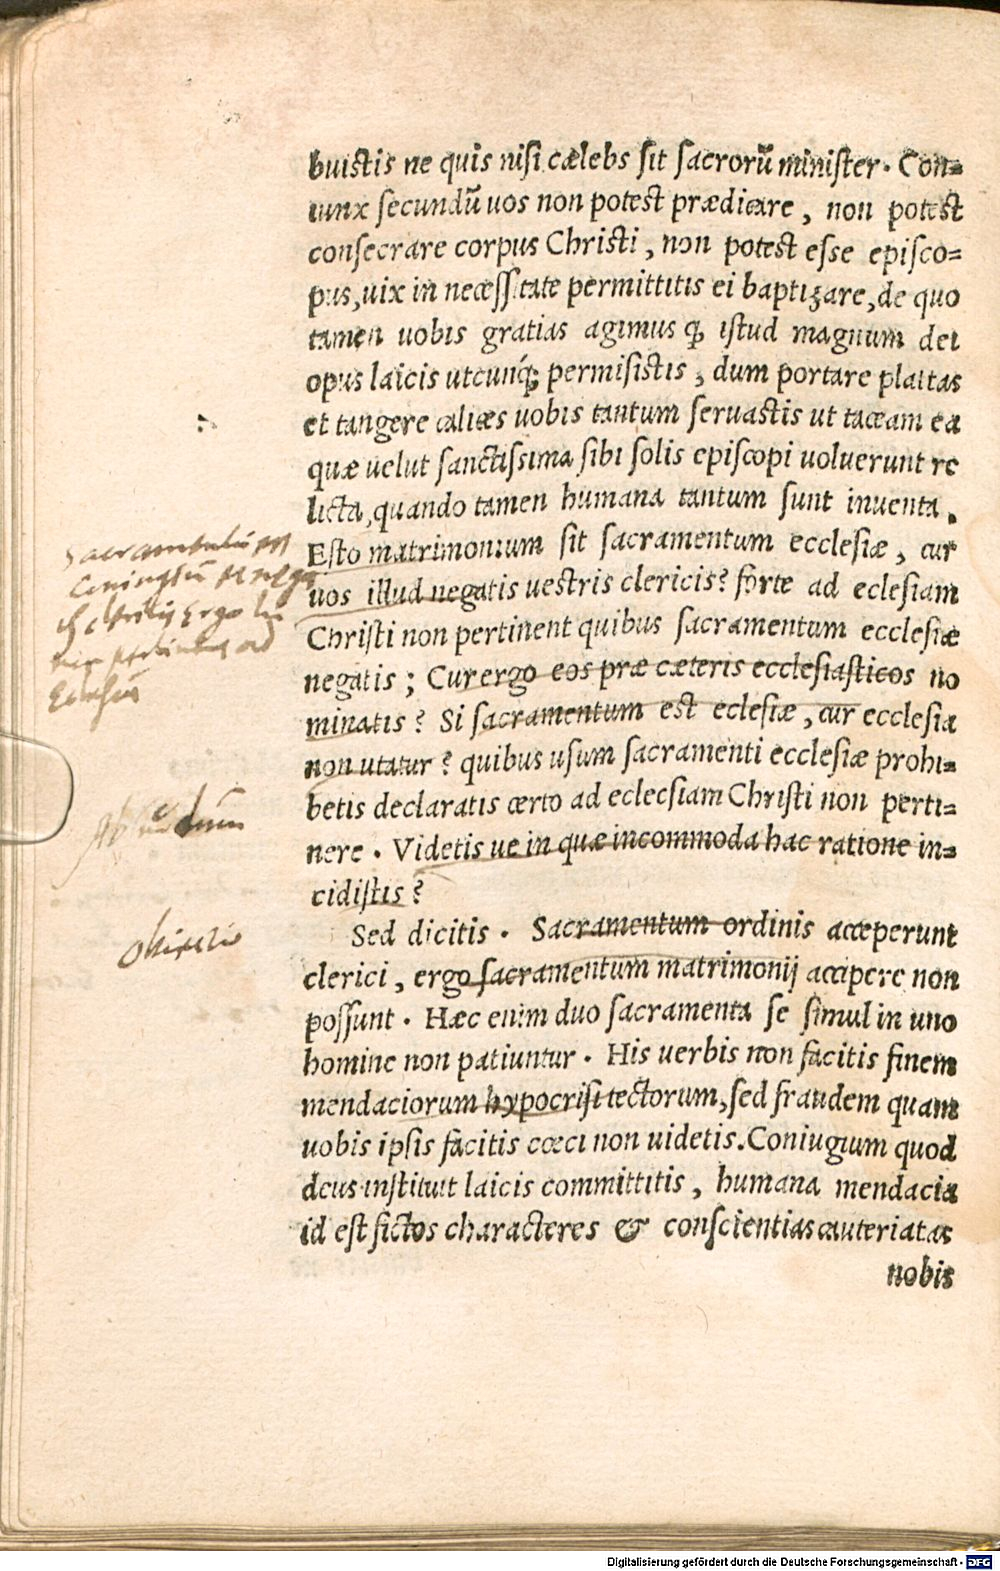 buistis ne quis nisi cælebs sit sacrorū minister. Con=
iunx secundū uos non potest prædicare, non potest
consecrare corpus Christi, non potest esse episco=
pus, uix in necessitate permittitis ei baptizare, de quo
tamen uobis gratias agimus q; istud magnum dei
opus laicis utcunq; permisistis, dum portare plaitas
et tangere calices uobis tantum seruastis ut taceam ea
quæ uelut sanctissima sibi solis episcopi uoluerunt re
licta, quando tamen humana tantum sunt inuenta.
Esto matrimonium sit sacramentum ecclesiæ, cur
uos illud negatis uestris clericis? forte ad eclesiam
Christi non pertinent quibus sacramentum ecclesiæ
negatis; Cur ergo eos præ cæteris ecclesiasticos no
minatis? Si sacramentum est eclesiæ, cur ecclesia
non utatur? quibus usum sacramenti ecclesiæ prohi=
betis declaratis certo ad eclecsiam Christi non perti=
nere. Videtis ue in quæ incommoda hac ratione in=
cidistis?
Sed dicitis. Sacramentum ordinis acceperunt
clerici, ergo sacramentum matrimonij accipere non
possunt. Hæc enim duo sacramenta se simul in uno
homine non patiuntur. His uerbis non facitis finem
mendaciorum hypocrisi tectorum, sed fraudem quam
uobis ipsis facitis cœci non uidetis. Coniugium quod
deus instituit laicis committitis, humana mendacia
id est fictos characteres & conscientias cauteriatas
nobis
Sacramentū
Coniugiū
Ergo
ad
Eclesiā
Absurdum
Obiectio
Digitalisierung gefördert durch die Deutsche Forschungsgemeinschaft - DFG